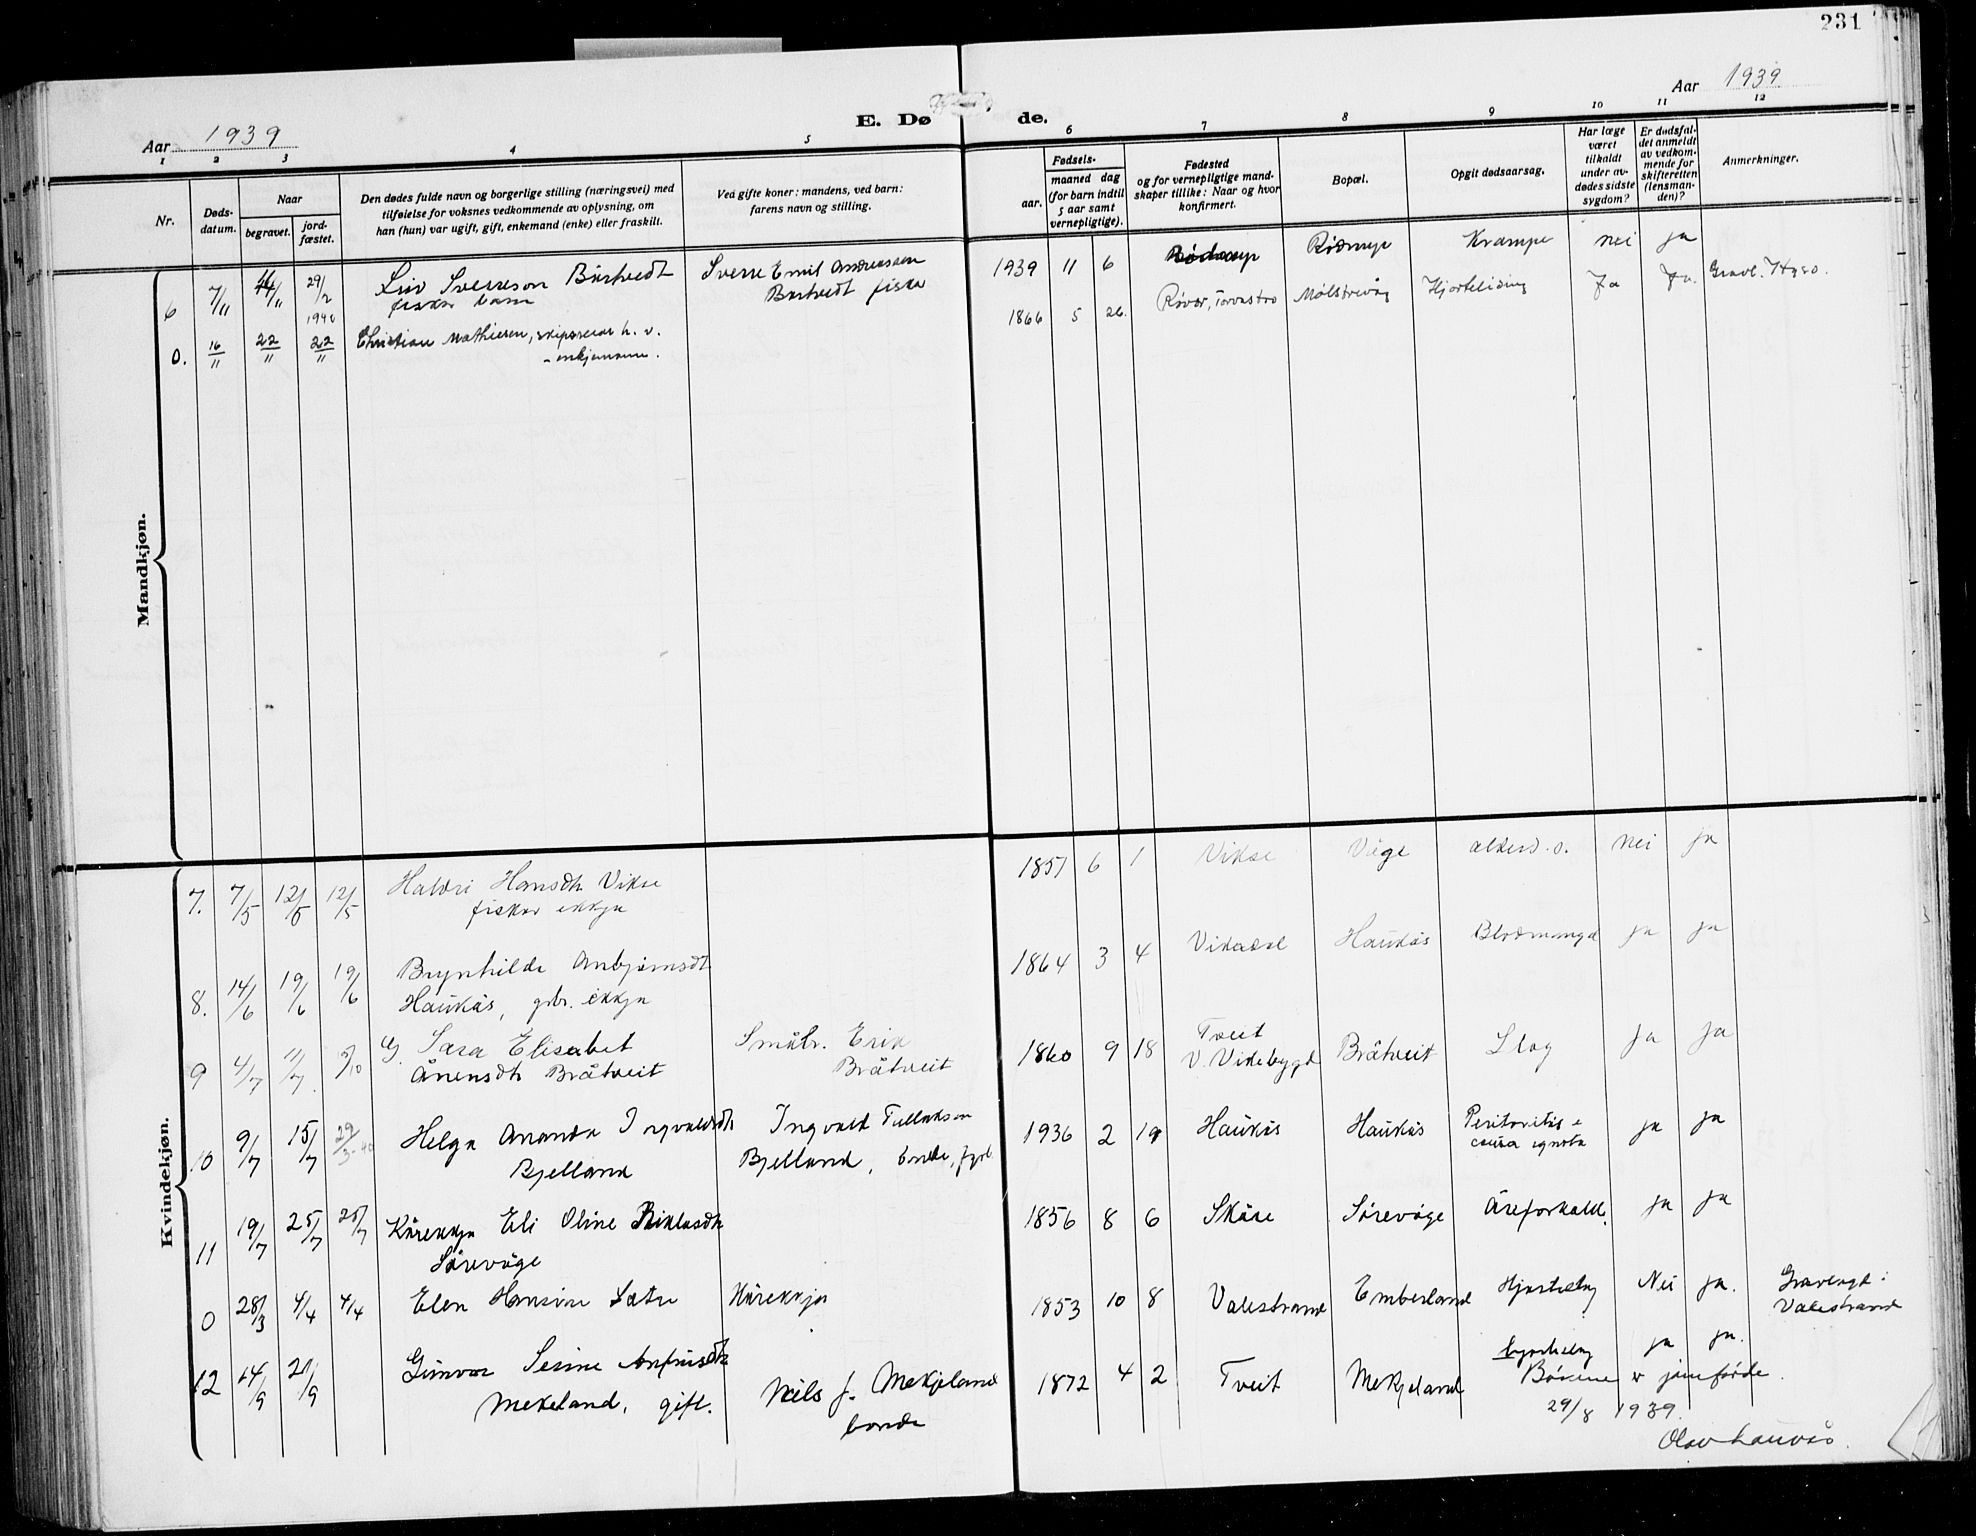 231
Aar 1939
E. Dø de.
Aar 1939
1 2 3 4 5 6 7 8 9 10 11 12
Nr.
Døds-
datum.
Naar
begravet.
jord-
fæstet.
Den dødes fulde navn og borgerlige stilling (næringsvei) med
tilføielse for voksnes vedkommende av oplysning, om
han (hun) var ugift, gift, enkemand (enke) eller fraskilt.
Ved gifte koner: mandens, ved barn:
farens navn og stilling.
Fødsels-
aar.
maaned dag
(for barn indtil
5 aar samt
vernepligtige).
Fødested
og for vernepligtige mand-
skaper tillike: Naar og hvor
konfirmert.
Bopæl.
Opgit dødsaarsag.
Har læge
været
tilkaldt
under av-
dødes sidste
sygdom?
Er dødsfal-
det anmeldt
av vedkom-
mende for
skifteretten
(lensman-
den)?
Anmerkninger.
Mandkjøn.
6 7/11 29/2 1940 Sverreson Børtvedt Sverre Emil Andreassen 1939 11 6 Krampe nei ja
fiskar barn Børtvedt fiskar
0. 16/11 22/11 22/11 Christian Mathiesen, 1866 5 26. Røvær, Torvastad Mølstrevåg Hjorteliding Ja Ja.
Kvindekjøn.
7. 7/5 12/5 12/5 Haldri Hansdtr Vikse 1857 6 1 Vikse Våge nei ja
fiskar ekkja
8. 14/6 19/6 19/6 Brynhilde Anbjørnsdt 1864 3 4 Vikadal Haukås Blodmangd ja ja
Haukås, grbr. ekkja
9 4/7 11/7 5/10 G. Sara Elisabet Småbr. Erik 1860 9 18 Tveit Bråtveit Slag ja ja
Ånensdtr Bråtveit Bråtveit V. Vikebygd
10 9/7 15/7 29/3-40 Helga Ananda Ingvaldsdtr Ingvald Tollaksen 1936 2 19 Haukås Haukås Peritonitis e ja ja
Bjelland Bjelland, bonde, causa ignota
11 19/7 25/7 25/7 Kårekkja Eli Oline Niklasdtr 1856 8 6 Skåre Sørevåge Åreforkalk. ja ja
Sørevåge
0 28/3 4/4 4/4 Elen Hansine Sætre Kårekkja 1853 10 8 Valestrand Emberland Nei ja. Gravlagt i
Valestrand
12 14/9 21/9 Gunvor Serine Anfinsdtr 1872 4 2 Tveit Mekjeland ja ja.
Mekeland, gift. Nils J. Mekjeland
bonde
Bøkene er jamførde.
29/8 1939.
Olav Lauvås